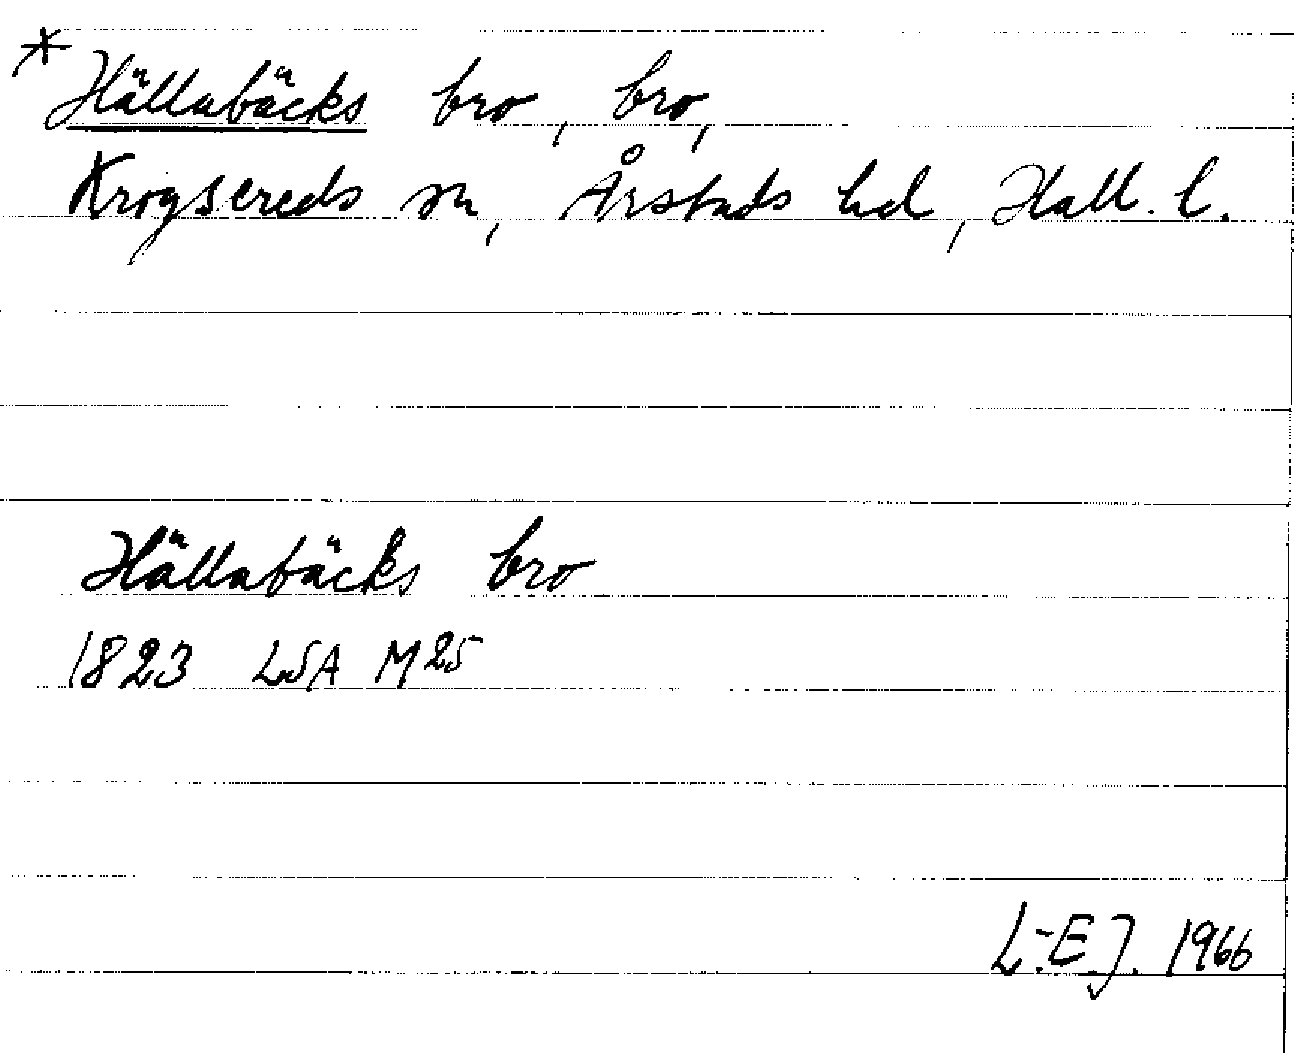 * Hällabäcks bro, bro,
Krogsereds sn, Årstads hd, Hall. l.
Hällabäcks bro
1823 LSA M25
L.-E.J. 1966